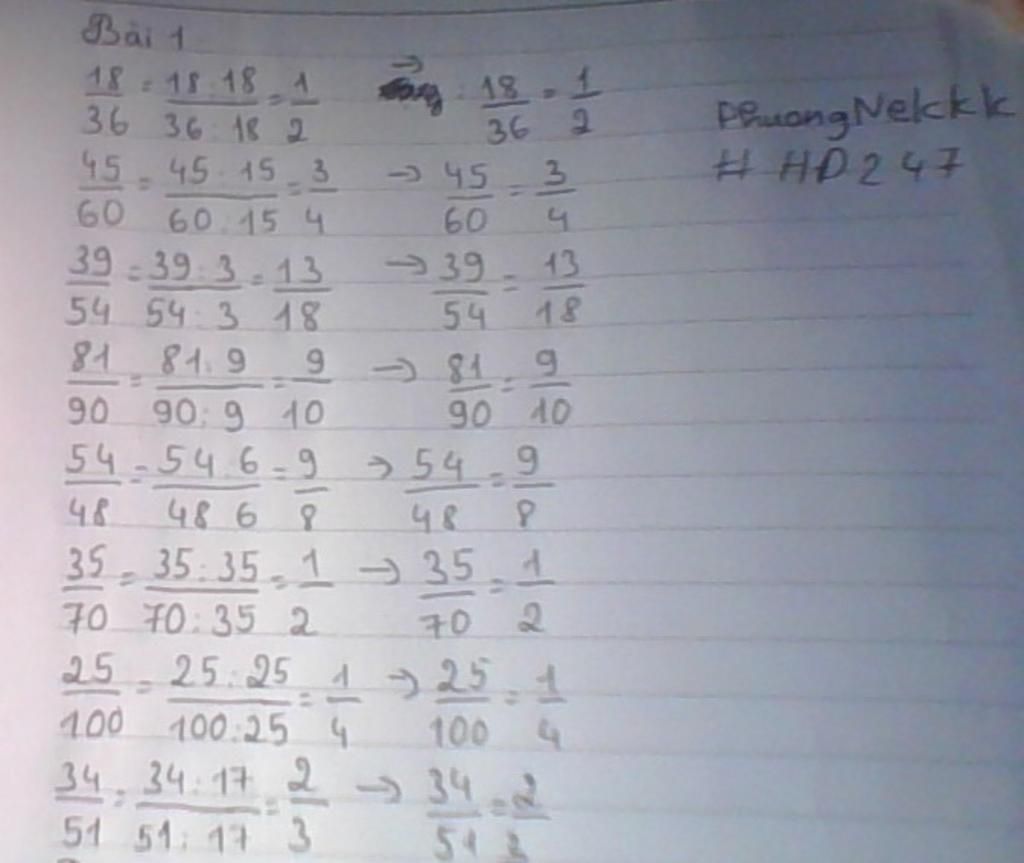 Bài 1
18/36 = 18:18/36:18 = 1/2 → : 18/36 = 1/2
PhuongNekkk
# HD247
45/60 = 45:15/60:15 = 3/4 → 45/60 = 3/4
39/54 = 39:3/54:3 = 13/18 → 39/54 = 13/18
81/90 = 81:9/90:9 = 9/10 → 81/90 = 9/10
54/48 = 54 6/48 6 = 9/8 → 54/48 = 9/8
35/70 = 35:35/70:35 = 1/2 → 35/70 = 1/2
25/100 = 25:25/100:25 = 1/4 → 25/100 = 1/4
34/51 = 34:17/51:17 = 2/3 → 34/51 = 2/3